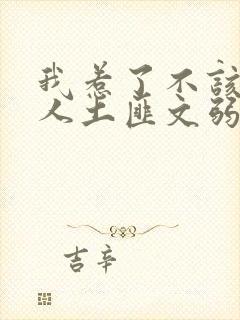 我惹了不该
人土匪文弱
吉辛